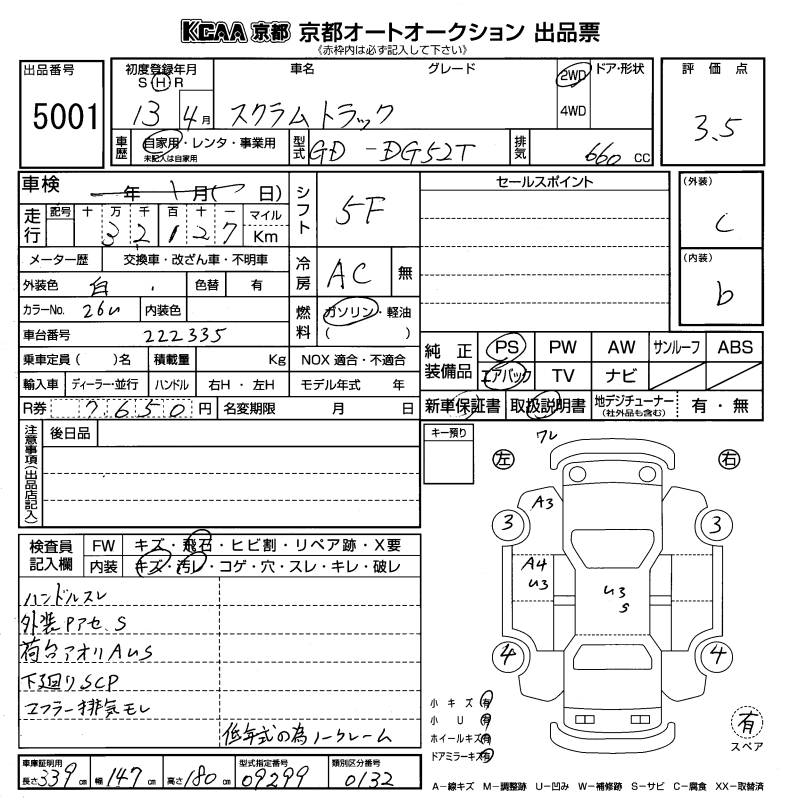 KCAA 京都 京都オートオークション 出品票
《赤枠内は必ず記入して下さい》
出品番号 5001
初度登録年月 車名 グレード ドア・形状
S H R 2WD
13 4月 スクラムトラック 4WD
車歴 自家用・レンタ・事業用 型式 GD-DG52T 排気 660 CC
未記入は自家用
評価点 3.5
車検 年 月( 日) シフト 5F セールスポイント
走行 記号 十 万 千 百 十 一 マイル
3 2 1 2 7 Km
メーター歴 交換車・改ざん車・不明車 冷房 AC 無
外装色 白 色替 有
カラーNo. 26U 内装色 燃料 ガソリン・軽油
( )
車台番号 222335
(外装) C
(内装) b
乗車定員( )名 積載量 Kg NOX 適合・不適合
輸入車 ディーラー・並行 ハンドル 右H・左H モデル年式 年
R券 7650円 名変期限 月 日
純正装備品 PS PW AW サンルーフ ABS
エアバック TV ナビ
新車保証書 取扱説明書 地デジチューナー 有・無
(社外品も含む)
注意事項(出品店記入) 後日品
キー預り
ワレ
左 右
A3
3 3
A4
U3 U3
S
4 4
検査員記入欄 FW キズ・飛石・ヒビ割・リペア跡・X要
内装 キズ・汚レ・コゲ・穴・スレ・キレ・破レ
ハンドルスレ
外装Pアセ、S
荷台アオリAUS
下廻りSCP
マフラー排気モレ
低年式の為ノークレーム
小キズ 有
小U 有
ホイールキズ 有
ドアミラーキズ 有
有
スペア
車庫証明用 型式指定番号 類別区分番号
長さ339cm 幅147cm 高さ180cm 09299 0132
A－線キズ M－調整跡 U－凹み W－補修跡 S－サビ C－腐食 XX－取替済